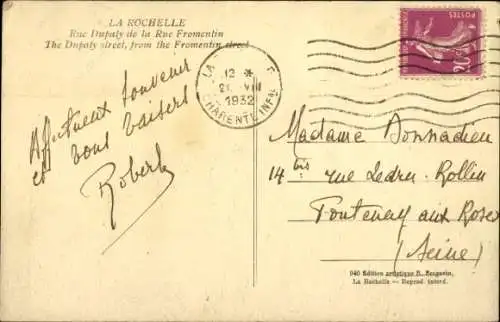 LA ROCHELLE
Rue Dupaty de la Rue Fromentin
The Dupaty street, from the Fromentin street
POSTES
20c
LA
12
21 VIII
1932
CHARENTE INFRE
Affectueux souvenir
et bons baisers
Robert
Madame Donnadieu
14 bis rue Ledru-Rollin
Fontenay aux Roses
(Seine)
940 Edition artistique R. Bergevin,
La Rochelle — Reprod. interd.